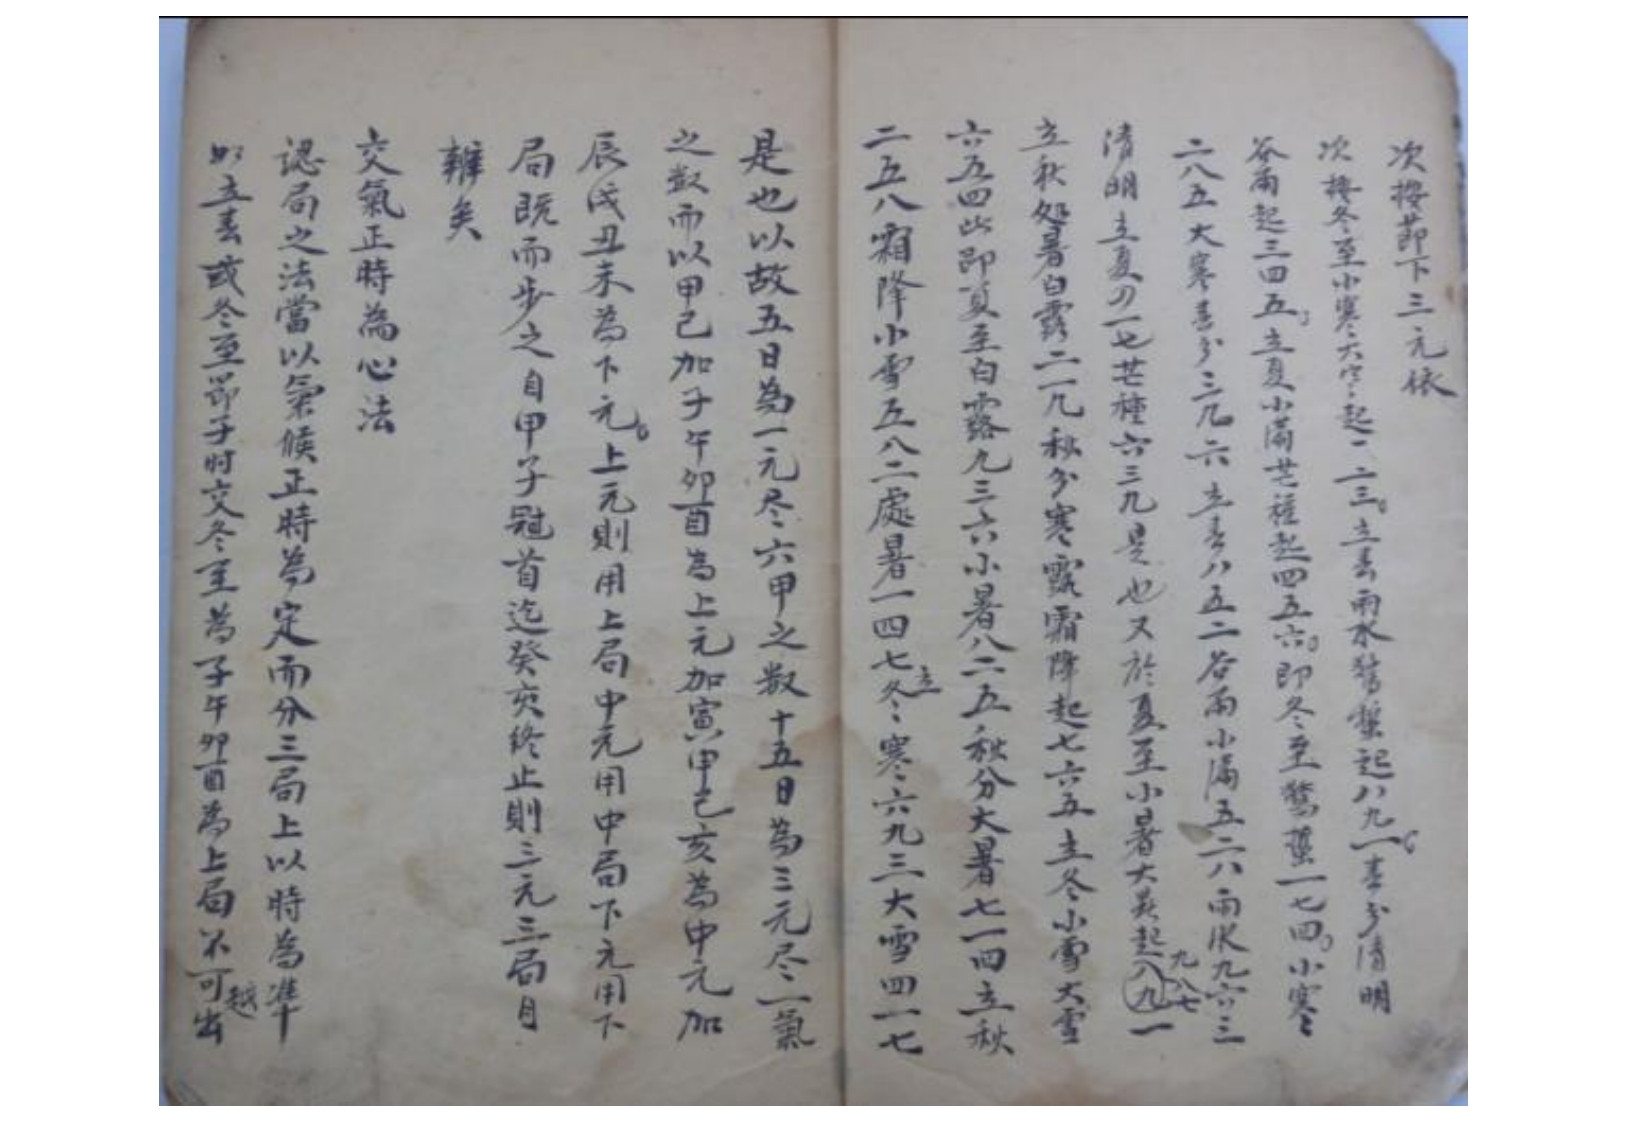 次接節下三元依
次接冬至小寒大寒起一二三立春雨水驚蟄起八九一春分清明
谷雨起三四五立夏小滿芒種起四五六即冬至驚蟄一七四小寒
二八五大寒春分三九六立春八五二谷雨小滿五二八雨水九六三
清明立夏四一七芒種六三九是也又於夏至小暑大暑起八九一
九八七
立秋処暑白露二一九秋分寒露霜降起七六五立冬小雪大雪
六五四此即夏至白露九三六小暑八二五秋分大暑七一四立秋
二五八霜降小雪五八二處暑一四七立冬寒六九三大雪四一七
是也以故五日為一元尽六甲之数十五日為三元尽一氣
之数而以甲己加子午卯酉為上元加寅申己亥為中元加
辰戌丑未為下元上元則用上局中元用中局下元用下
局既而步之自甲子冠首迄癸亥終止則三元三局自
辨矣
交氣正時為心法
認局之法當以氣候正時為定而分三局上以時為準
如立春或冬至節子时交冬至為子午卯酉為上局不可越出